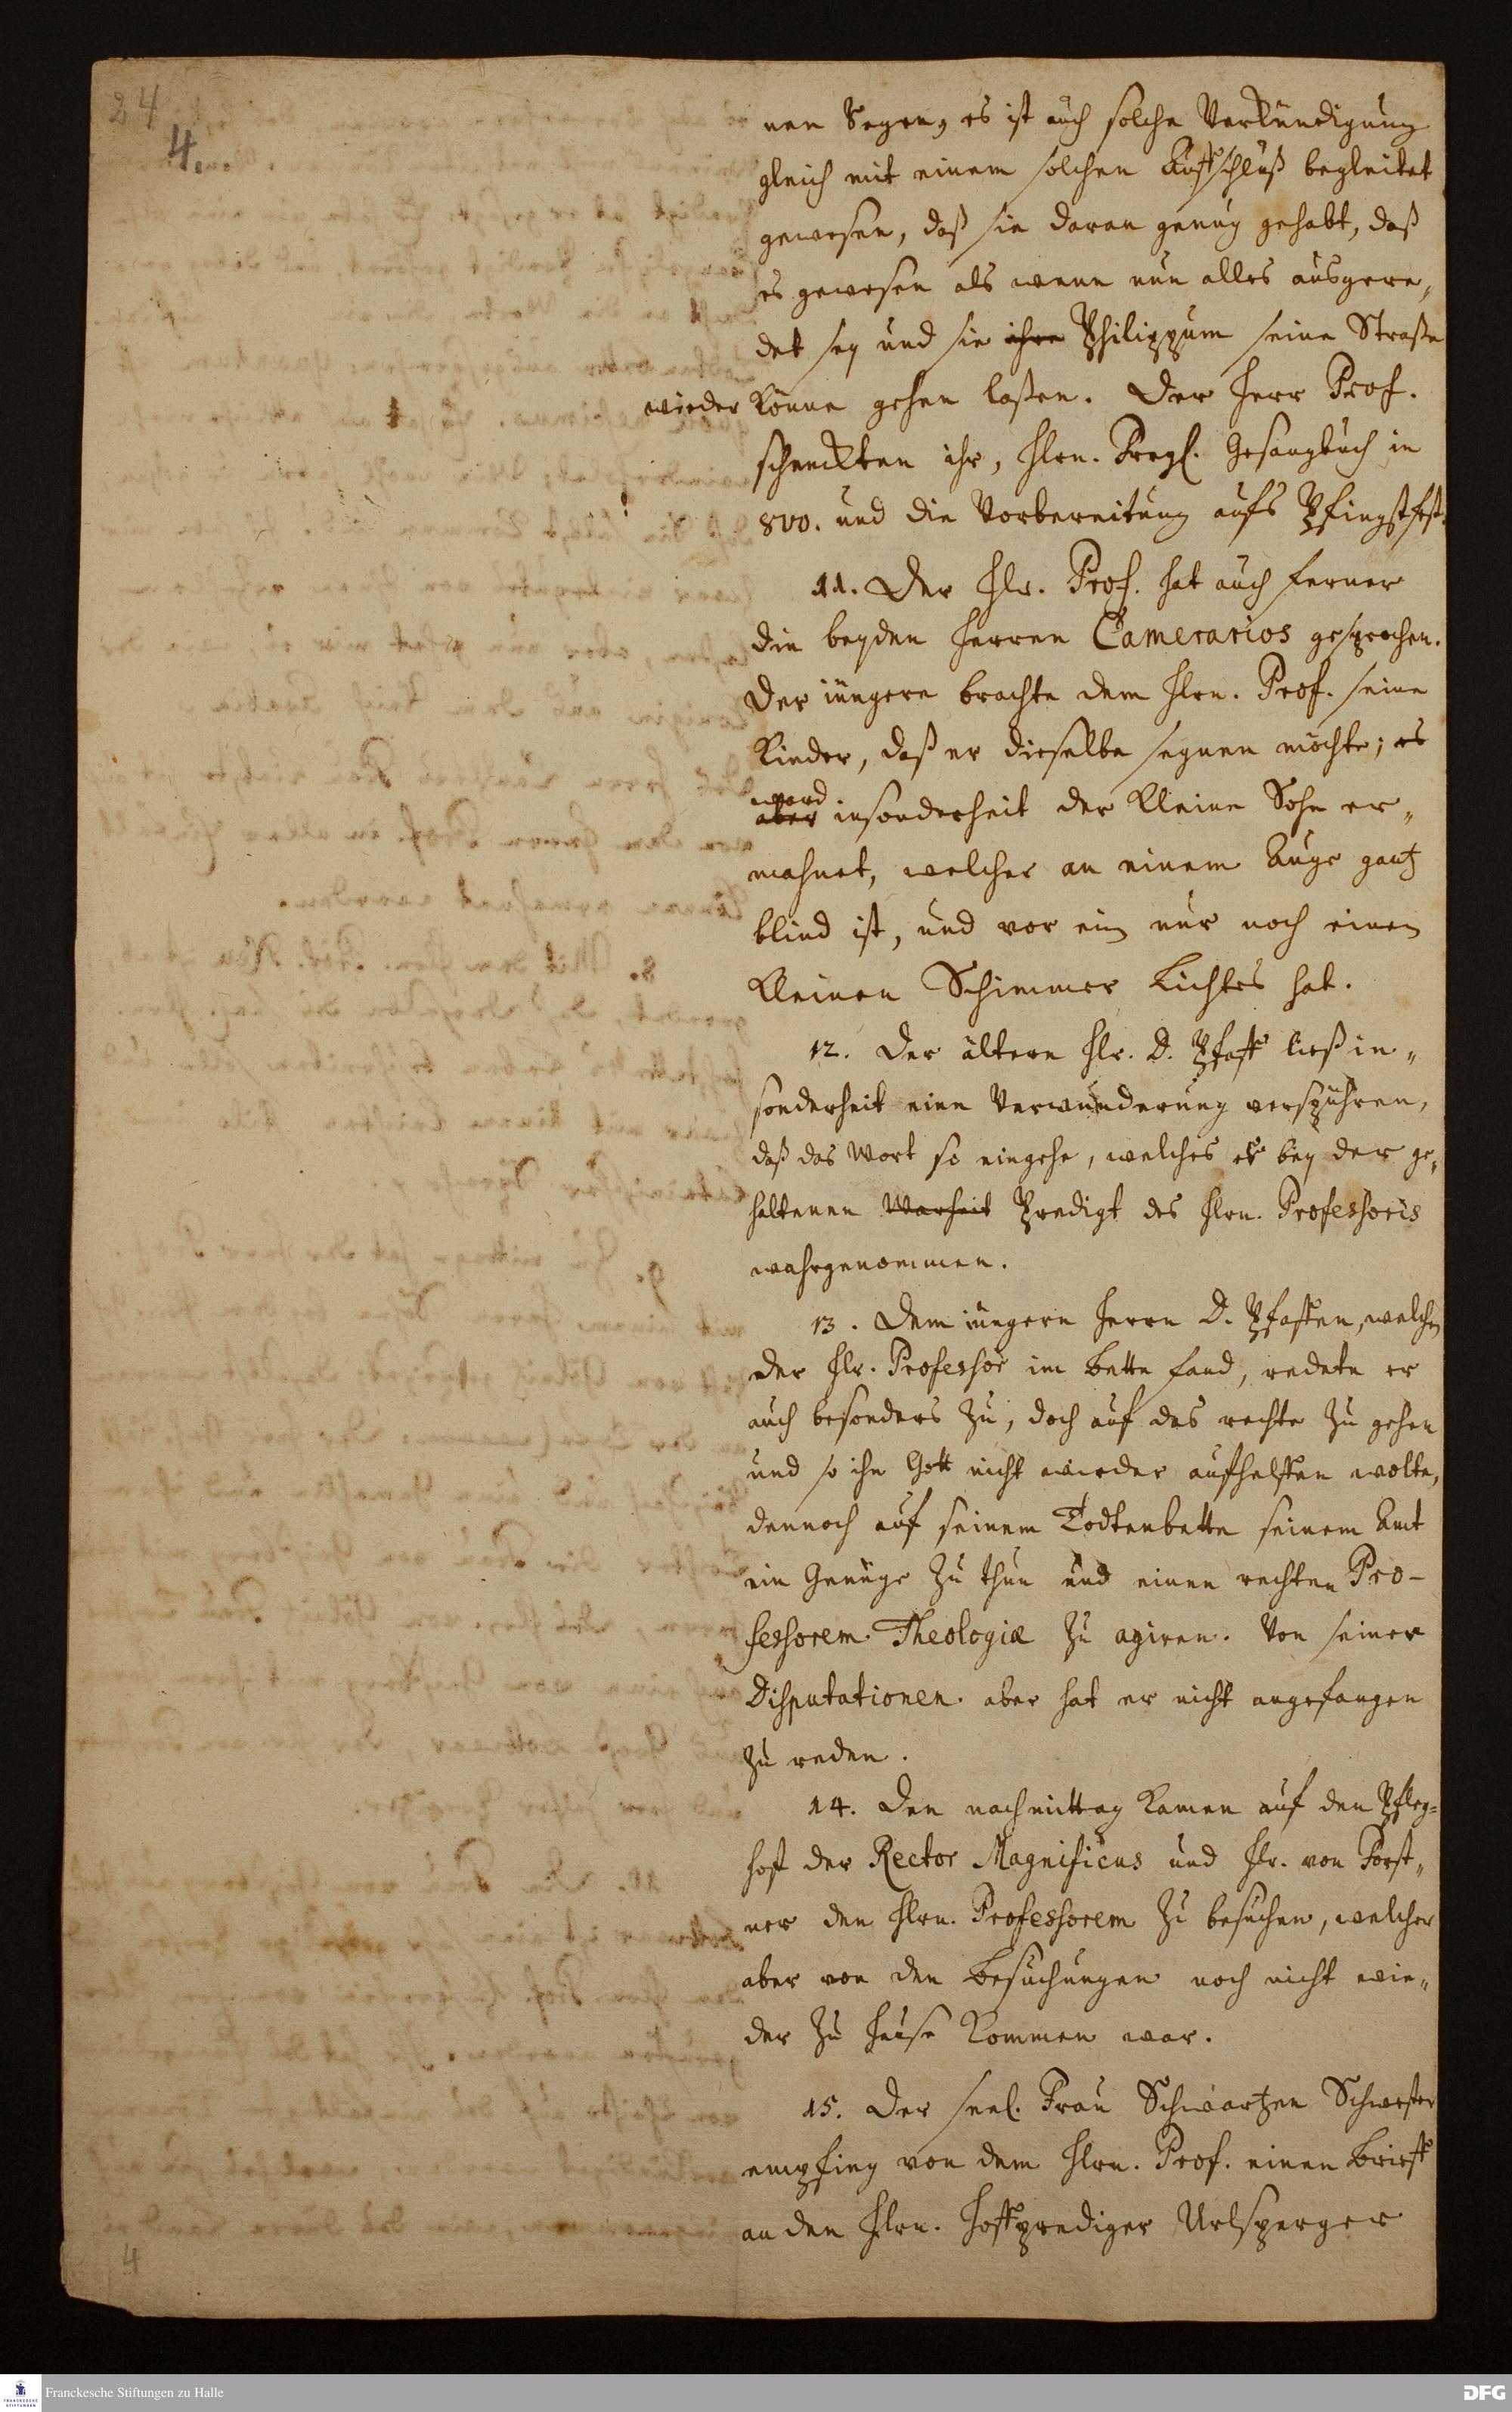 24
4.
nen Segen, es ist auch solche Verkündigung
gleich mit einem solchen begleitet
gewesen, daß sie daran genug gehabt, daß
es gewesen als wenn nun alles ausgere„
det sey und sie ihren Philippum seine Straße
wieder könne gehen laßen. Der Herr Prof.
schenckten ihr, Hrn. Freyl. Gesangbuch in
8vo. und die Vorbereitung aufs Pfingstfest.
11. Der Hr. Prof. hat auch ferner
die beyden Herren Camerarios gesprochen.
Der iüngere brachte dem Hrn. Prof. seine
Kinder, daß er dieselbe segnen möchte; es
ward
aber insonderheit der kleine Sohn er„
mahnet, welcher an einem Auge gantz
blind ist, und vor ein nur noch einen
kleinen Schimmer Lichtes hat.
12. Der ältere Hr. D. Pfaff ließ in„
sonderheit eine Verwunderung verspühren,
daß das Wort so eingehe, welches er bey der ge„
haltenen Warheit Predigt des Hrn. Professoris
wahrgenommen.
13. Dem iüngern Herrn D. Pfaffen, welchen
der Hr. Professor im Bette fand, redete er
auch besonders zu, doch auf das rechte zu gehen
und so ihn Gott nicht wieder aufhelffen wolte,
dennoch auf seinem Todtenbette seinem Amt
ein Genüge zu thun und einen rechten Pro-
fessorem Theologiæ zu agiren. Von seiner
Disputationen aber hat er nicht angefangen
zu reden.
14. Den nachmittag kamen auf den Pfleg-
hoff der Rector Magnificus und Hr. von Forst„
ner den Hrn. Professorem zu besuchen, welcher
aber von den Besuchungen noch nicht wie„
der zu Hause kommen war.
15. Der seel. Frau Schwartzen Schwester
empfing von dem Hrn. Prof. einen Brieff
an den Hrn. Hoffprediger Urlsperger
4
Franckesche Stiftungen zu Halle
DFG